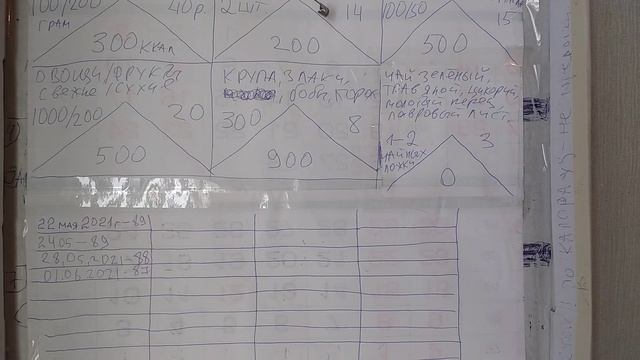 100/200
ГРАМ
40р.
300 ККАЛ
2 ШТ
14
200
100/50
15
500
ОВОЩИ/ФРУКТЫ
СВЕЖИЕ/СУХИЕ
1000/200
20
500
КРУПА, ЗЛАКИ,
БОБЫ, ГОРОХ
300
8
900
ЧАЙ ЗЕЛЁНЫЙ,
ТРАВЯНОЙ, ЦИКОРИЙ,
МОЛОТЫЙ ПЕРЕЦ,
ЛАВРОВЫЙ ЛИСТ.
1-2
ЧАЙНЫХ
ЛОЖКИ
3
0
22 мая 2021г-89
24.05-89
28.05.2021-88
01.06.2021-87